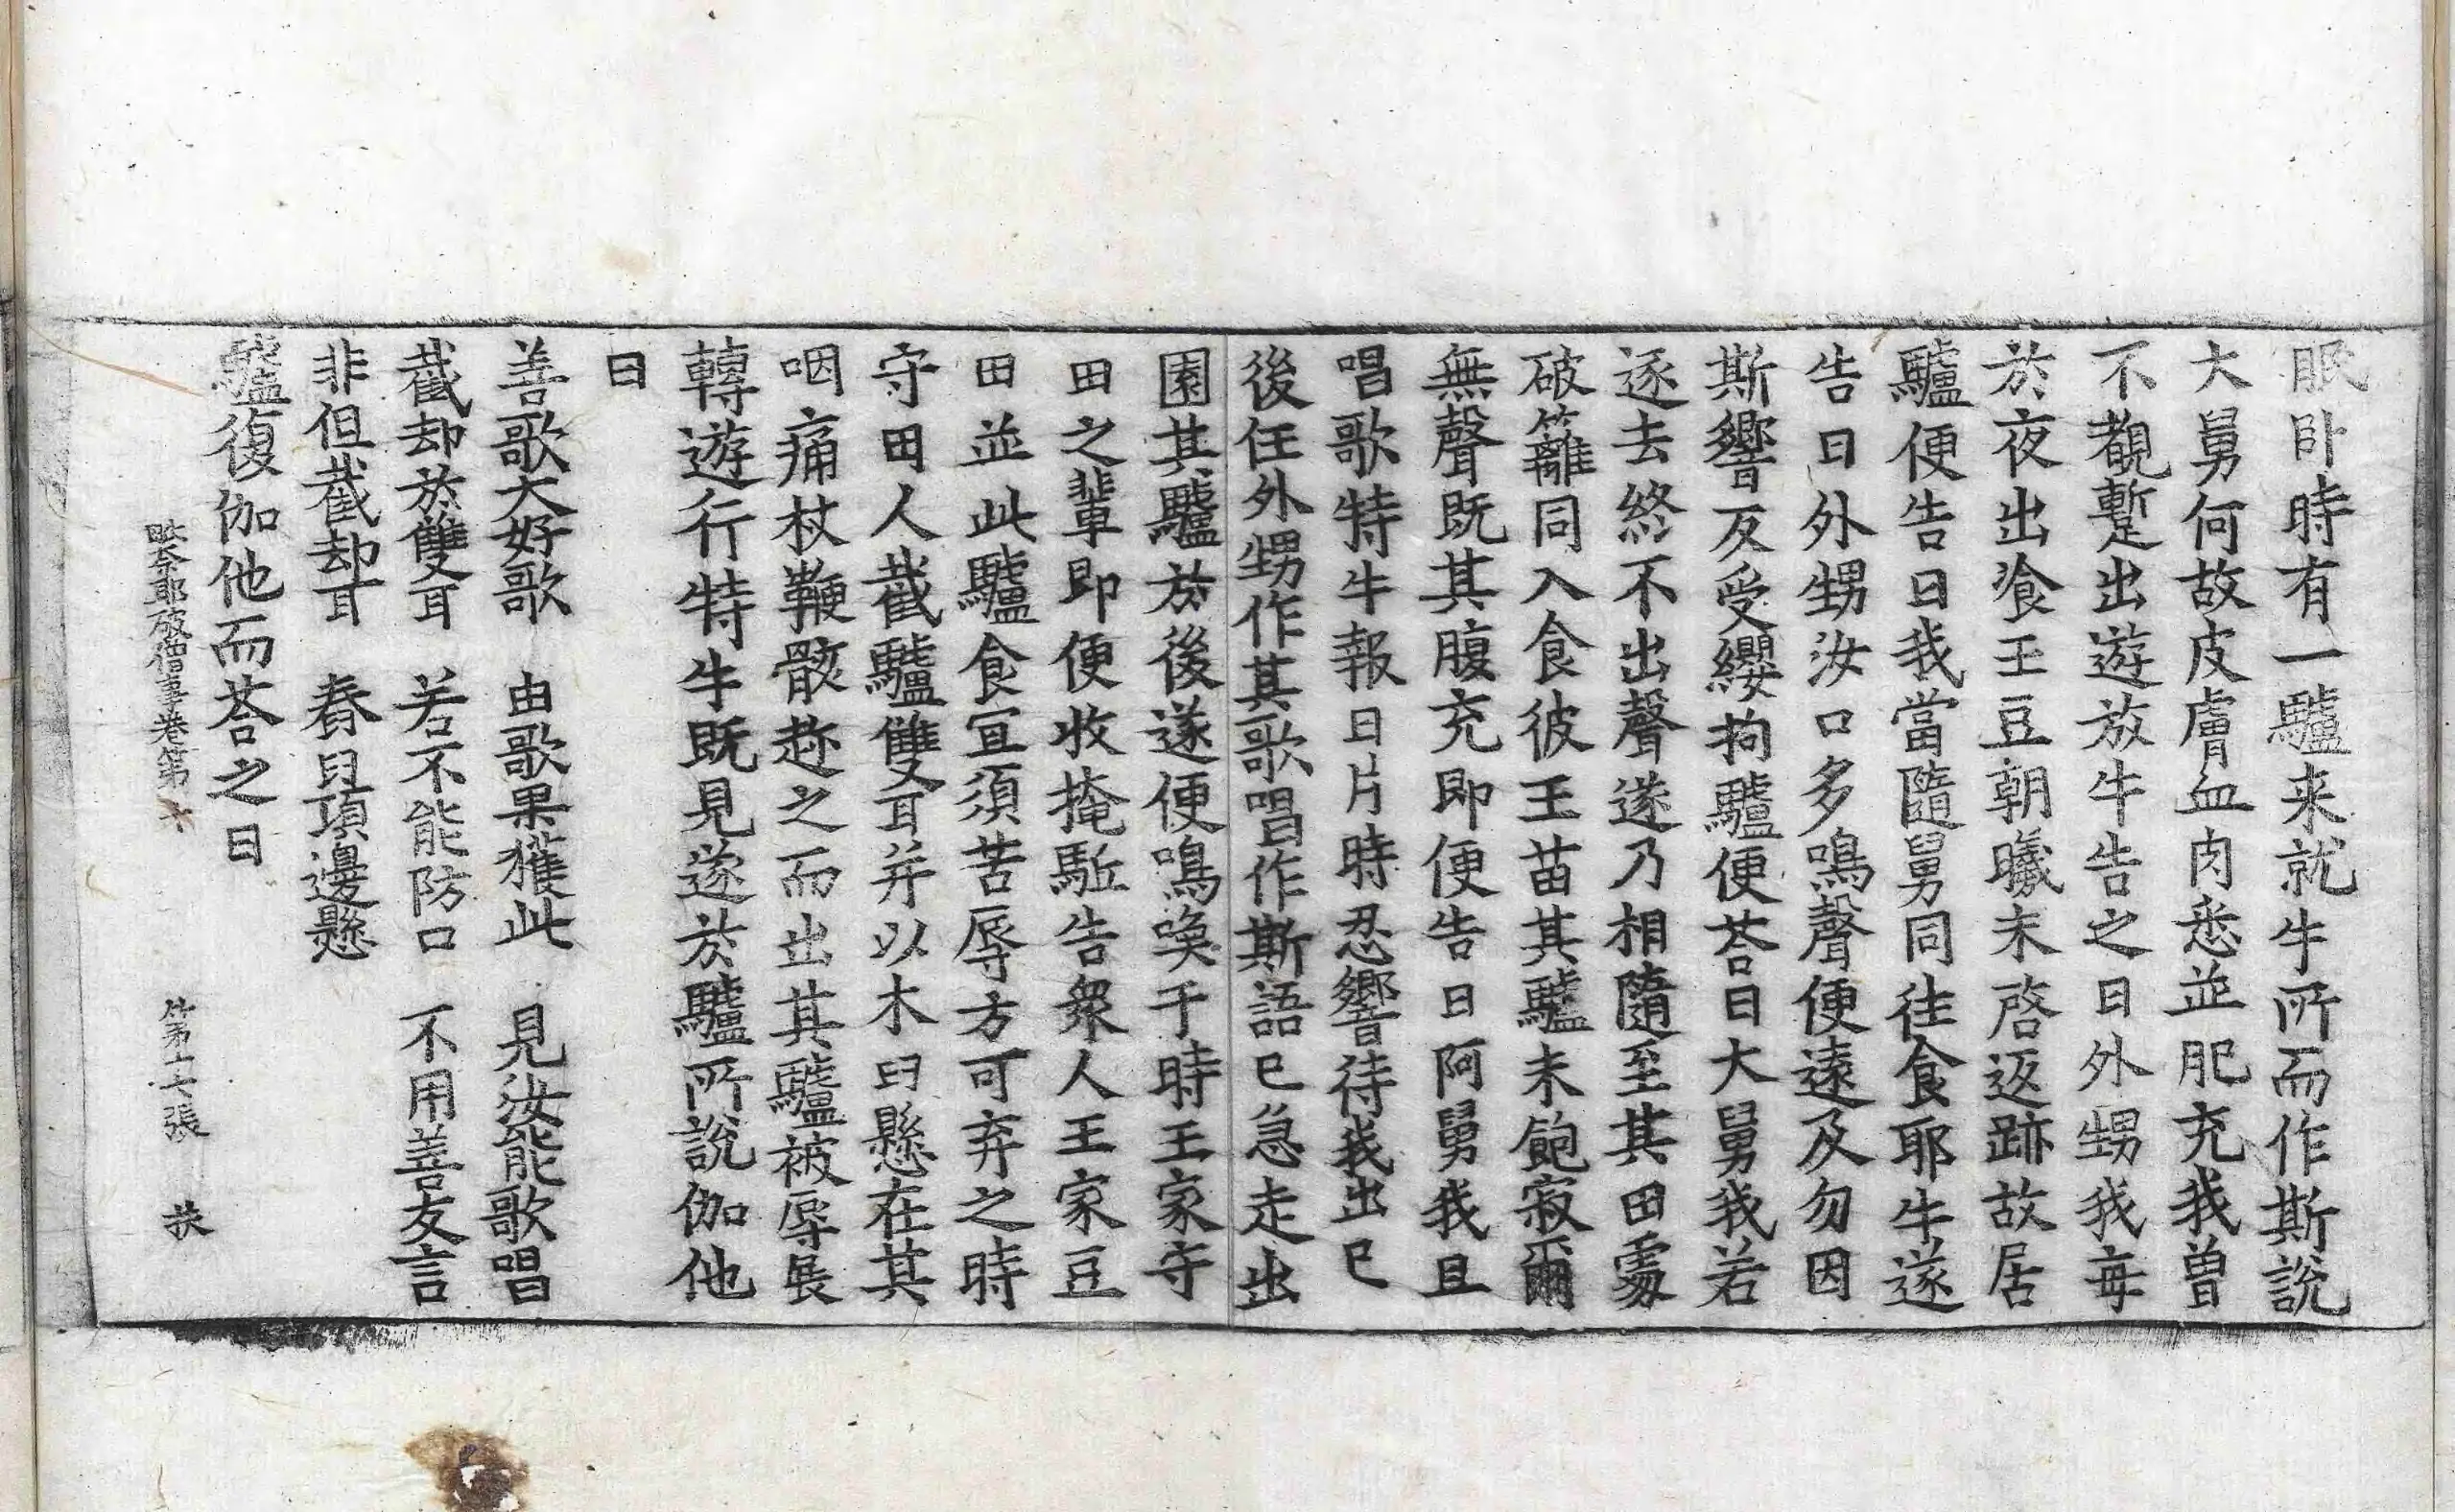 眠卧時有一驢来就牛所而作斯說
大舅何故皮膚血肉悉並肥充我曾
不覩暫出遊放牛告之曰外甥我每
於夜出飡王豆朝曦未啓返跡故居
驢便告曰我當隨舅同往食耶牛遂
告曰外甥汝口多鳴聲便遠及勿因
斯響反受纓拘驢便荅曰大舅我若
逐去終不出聲遂乃相隨至其田處
破籬同入食彼王苗其驢未飽寂爾
無聲既其腹充即便告曰阿舅我且
唱歌特牛報曰片時忍響待我出已
後任外甥作其歌唱作斯語已急走出
園其驢於後遂便鳴喚于時王家守
田之輩即便收掩駈告衆人王家豆
田並此驢食宜須苦辱方可弃之時
守田人截驢雙耳并以木臼懸在其
咽痛杖鞭骸趂之而出其驢被辱展
轉遊行特牛既見遂於驢所說伽他
曰
善歌大好歌　由歌果獲此　見汝能歌唱
截却於雙耳　若不能防口　不用善友言
非但截却耳　舂臼項邊懸
驢復伽他而荅之曰
毗奈耶破僧事卷第十　第十六張　扶